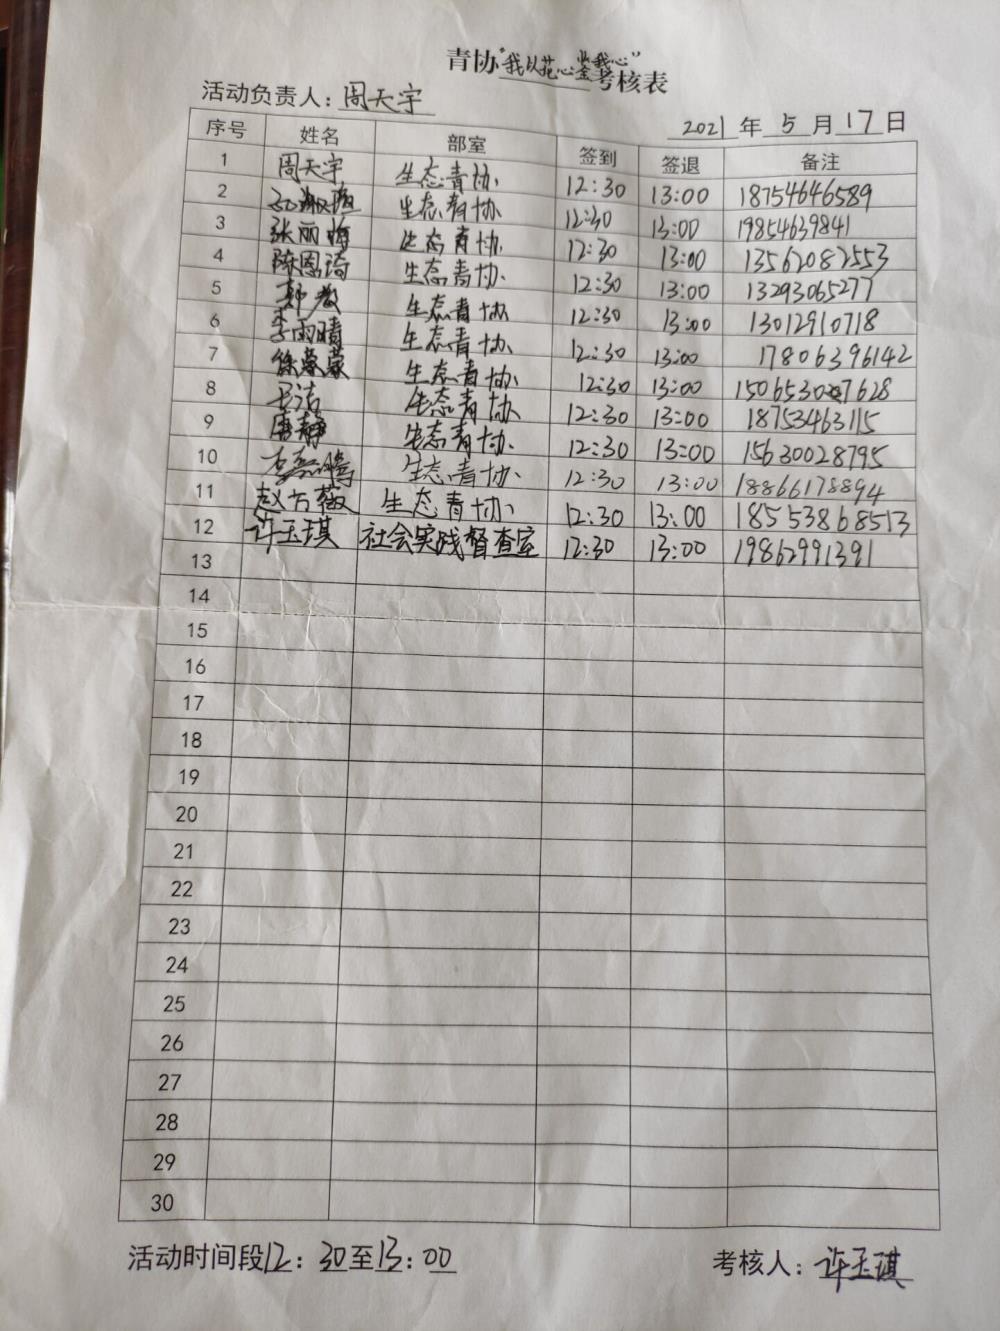 青协"我以花心鉴我心"考核表
活动负责人：周天宇
2021年5月17日
序号 姓名 部室 签到 签退 备注
1 周天宇 生态青协 12:30 13:00 18754646589
2 生态青协 12:30 13:00 19854639841
3 张丽梅 生态青协 12:30 13:00 13562082553
4 陈恩琦 生态青协 12:30 13:00 13293065277
5 生态青协 12:30 13:00 13012910718
6 李雨晴 生态青协 12:30 13:00 17806396142
7 徐荣荣 生态青协 12:30 13:00
8 王洁 生态青协 12:30 13:00 18753463115
9 唐静 生态青协 12:30 13:00 15630028795
10 生态青协 12:30 13:00 18866178894
11 赵方薇 生态青协 12:30 13:00 18553868513
12 许玉琪 社会实践督查室 12:30 13:00 19862991391
13
14
15
16
17
18
19
20
21
22
23
24
25
26
27
28
29
30
活动时间段12：30至13：00 考核人：许玉琪